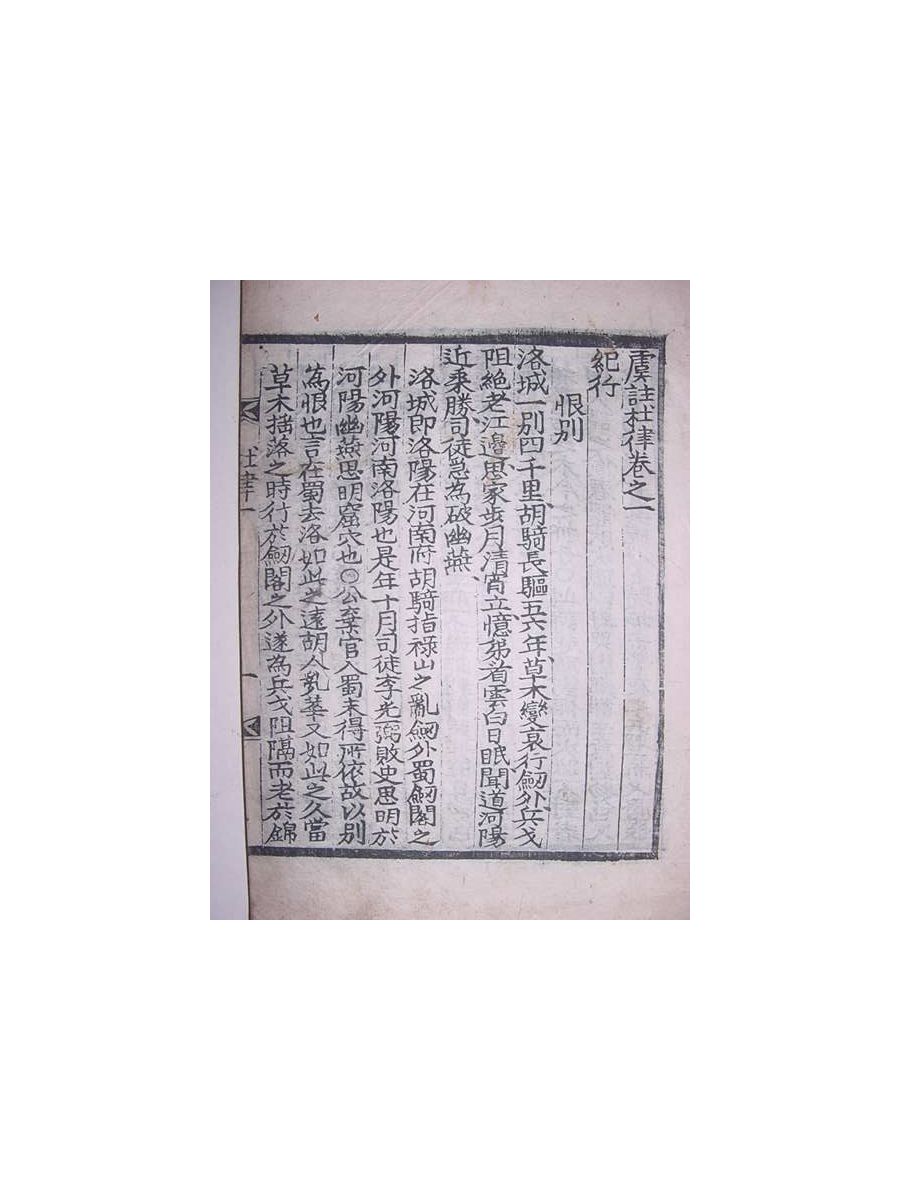 虞註杜律卷之一
紀行
恨別
洛城一別四千里胡騎長驅五六年草木變衰行劒外兵戈
阻絶老江邊思家步月清宵立憶弟看雲白日眠聞道河陽
近乘勝司徒急為破幽燕
洛城即洛陽在河南府胡騎指祿山之亂劒外蜀劒閣之
外河陽河南洛陽也是年十月司徒李光弼敗史思明於
河陽幽燕思明窟穴也〇公棄官入蜀未得所依故以別
為恨也言在蜀去洛如此之遠胡人亂華又如此之久當
草木揺落之時行於劒閣之外遂為兵戈阻隔而老於錦
杜律一
一